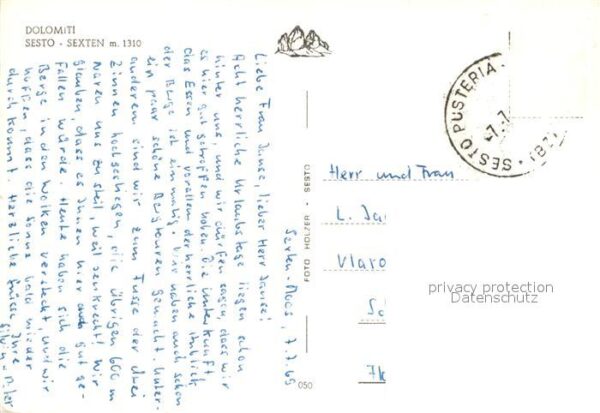 DOLOMITI
SESTO - SEXTEN m. 1310
Sexten-Moos, 7.7.69
Liebe Frau Janse, lieber Herr Janse!
Acht herrliche Urlaubstage liegen schon
hinter uns, und wir dürfen sagen, dass wir
es hier gut getroffen haben. Die Unterkunft,
das Essen und vor allem der herrliche Anblick
der Berge ist einmalig. Wir haben auch schon
ein paar schöne Bergtouren gemacht. Unter
anderem sind wir zum Fusse der drei
Zinnen hochgestiegen, die übrigen 600 m
waren uns zu steil, weil senkrecht! Wir
glauben, dass es Ihnen hier auch gut ge-
fallen würde. Heute haben sich die
Berge in den Wolken versteckt, und wir
hoffen, dass die Sonne bald wieder
durchkommt. Herzliche Grüsse Ihre
FOTO HÖLZER - SESTO
050
SESTO PUSTERIA
7.7.
(BZ)
Herr und Frau
L. Ja
Vlaro
privacy protection
Datenschutz